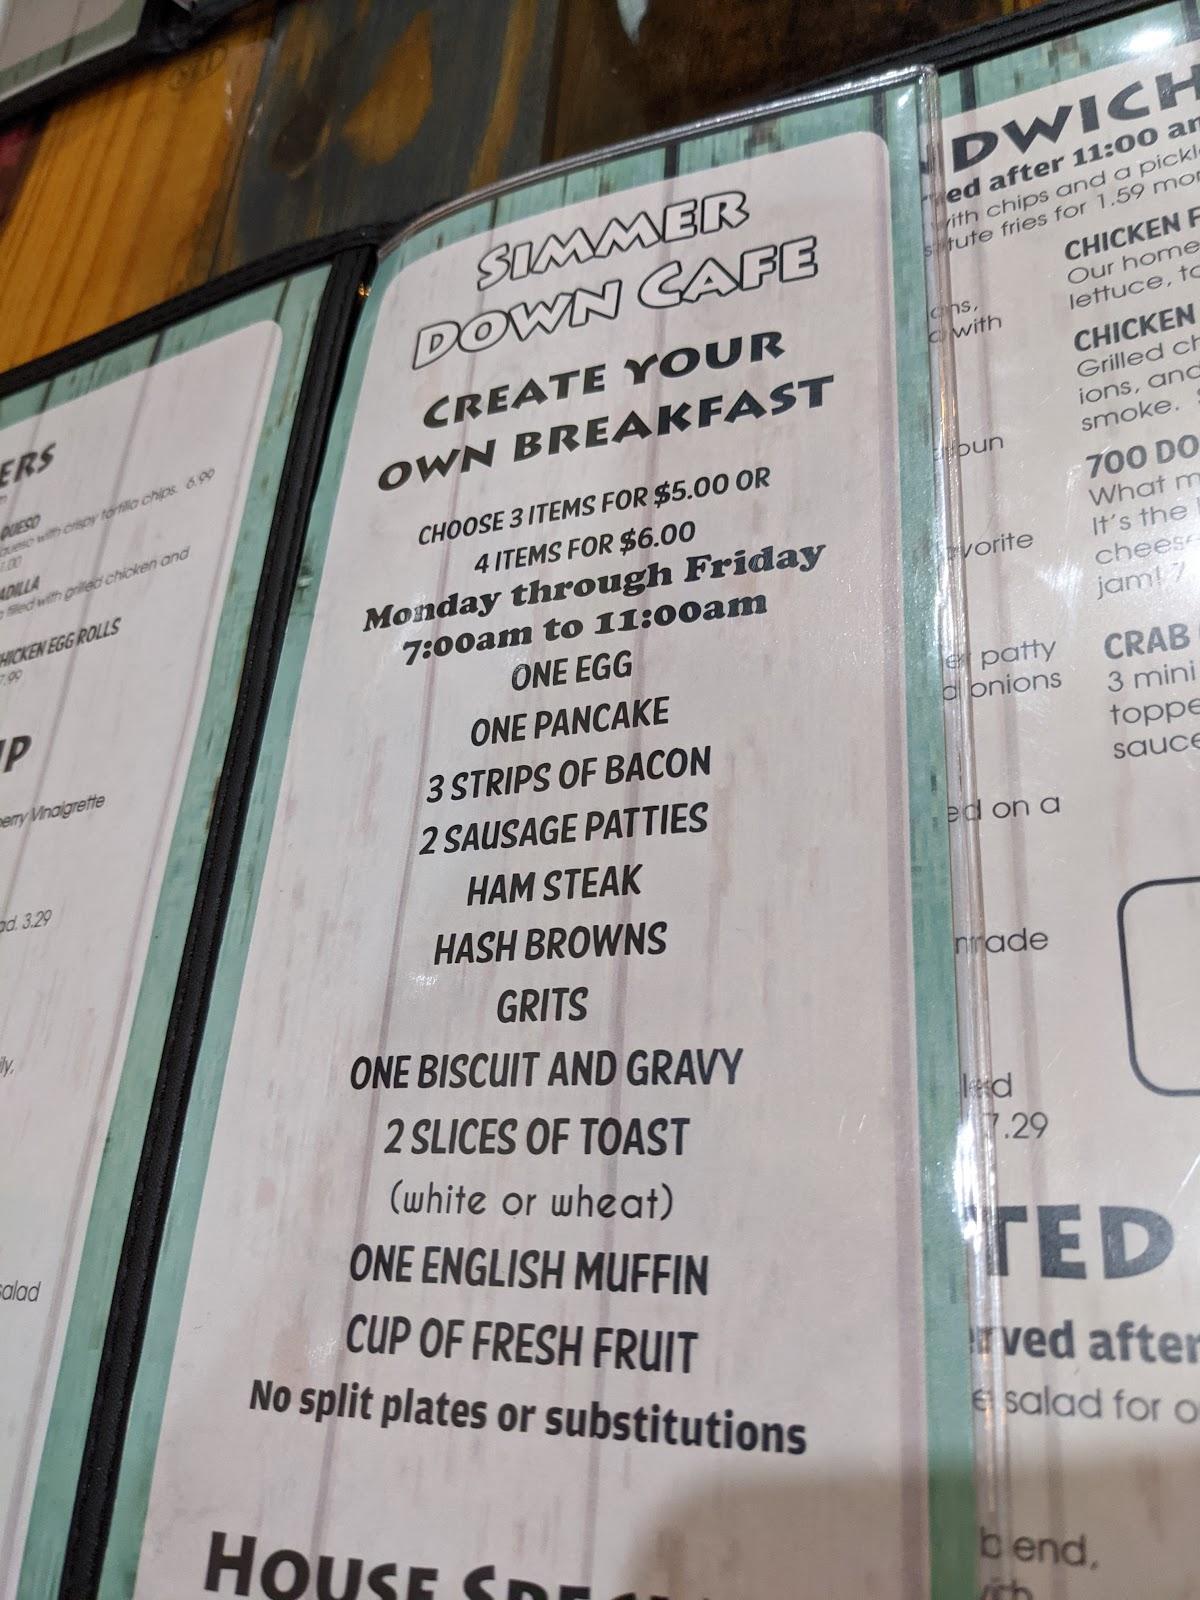 ERS
QUESO
queso with crispy tortilla chips. 6.99
ADILLA
filled with grilled chicken and
HICKEN EGG ROLLS
7.99
erry Vinaigrette
ad. 3.29
ily,
salad
SIMMER
DOWN CAFE
CREATE YOUR
OWN BREAKFAST
CHOOSE 3 ITEMS FOR $5.00 OR
4 ITEMS FOR $6.00
Monday through Friday
7:00am to 11:00am
ONE EGG
ONE PANCAKE
3 STRIPS OF BACON
2 SAUSAGE PATTIES
HAM STEAK
HASH BROWNS
GRITS
ONE BISCUIT AND GRAVY
2 SLICES OF TOAST
(white or wheat)
ONE ENGLISH MUFFIN
CUP OF FRESH FRUIT
No split plates or substitutions
HOUSE
DWICH
ed after 11:00 am
with chips and a pickl
tute fries for 1.59 mor
with
bun
vorite
patty
onions
ed on a
made
7.29
CHICKEN F
Our home
lettuce, to
CHICKEN
Grilled ch
ions, and
smoke.
700 DO
What m
It's the
cheese
jam! 7
CRAB
3 mini
toppe
sauce
TED
rved after
salad for o
blend,